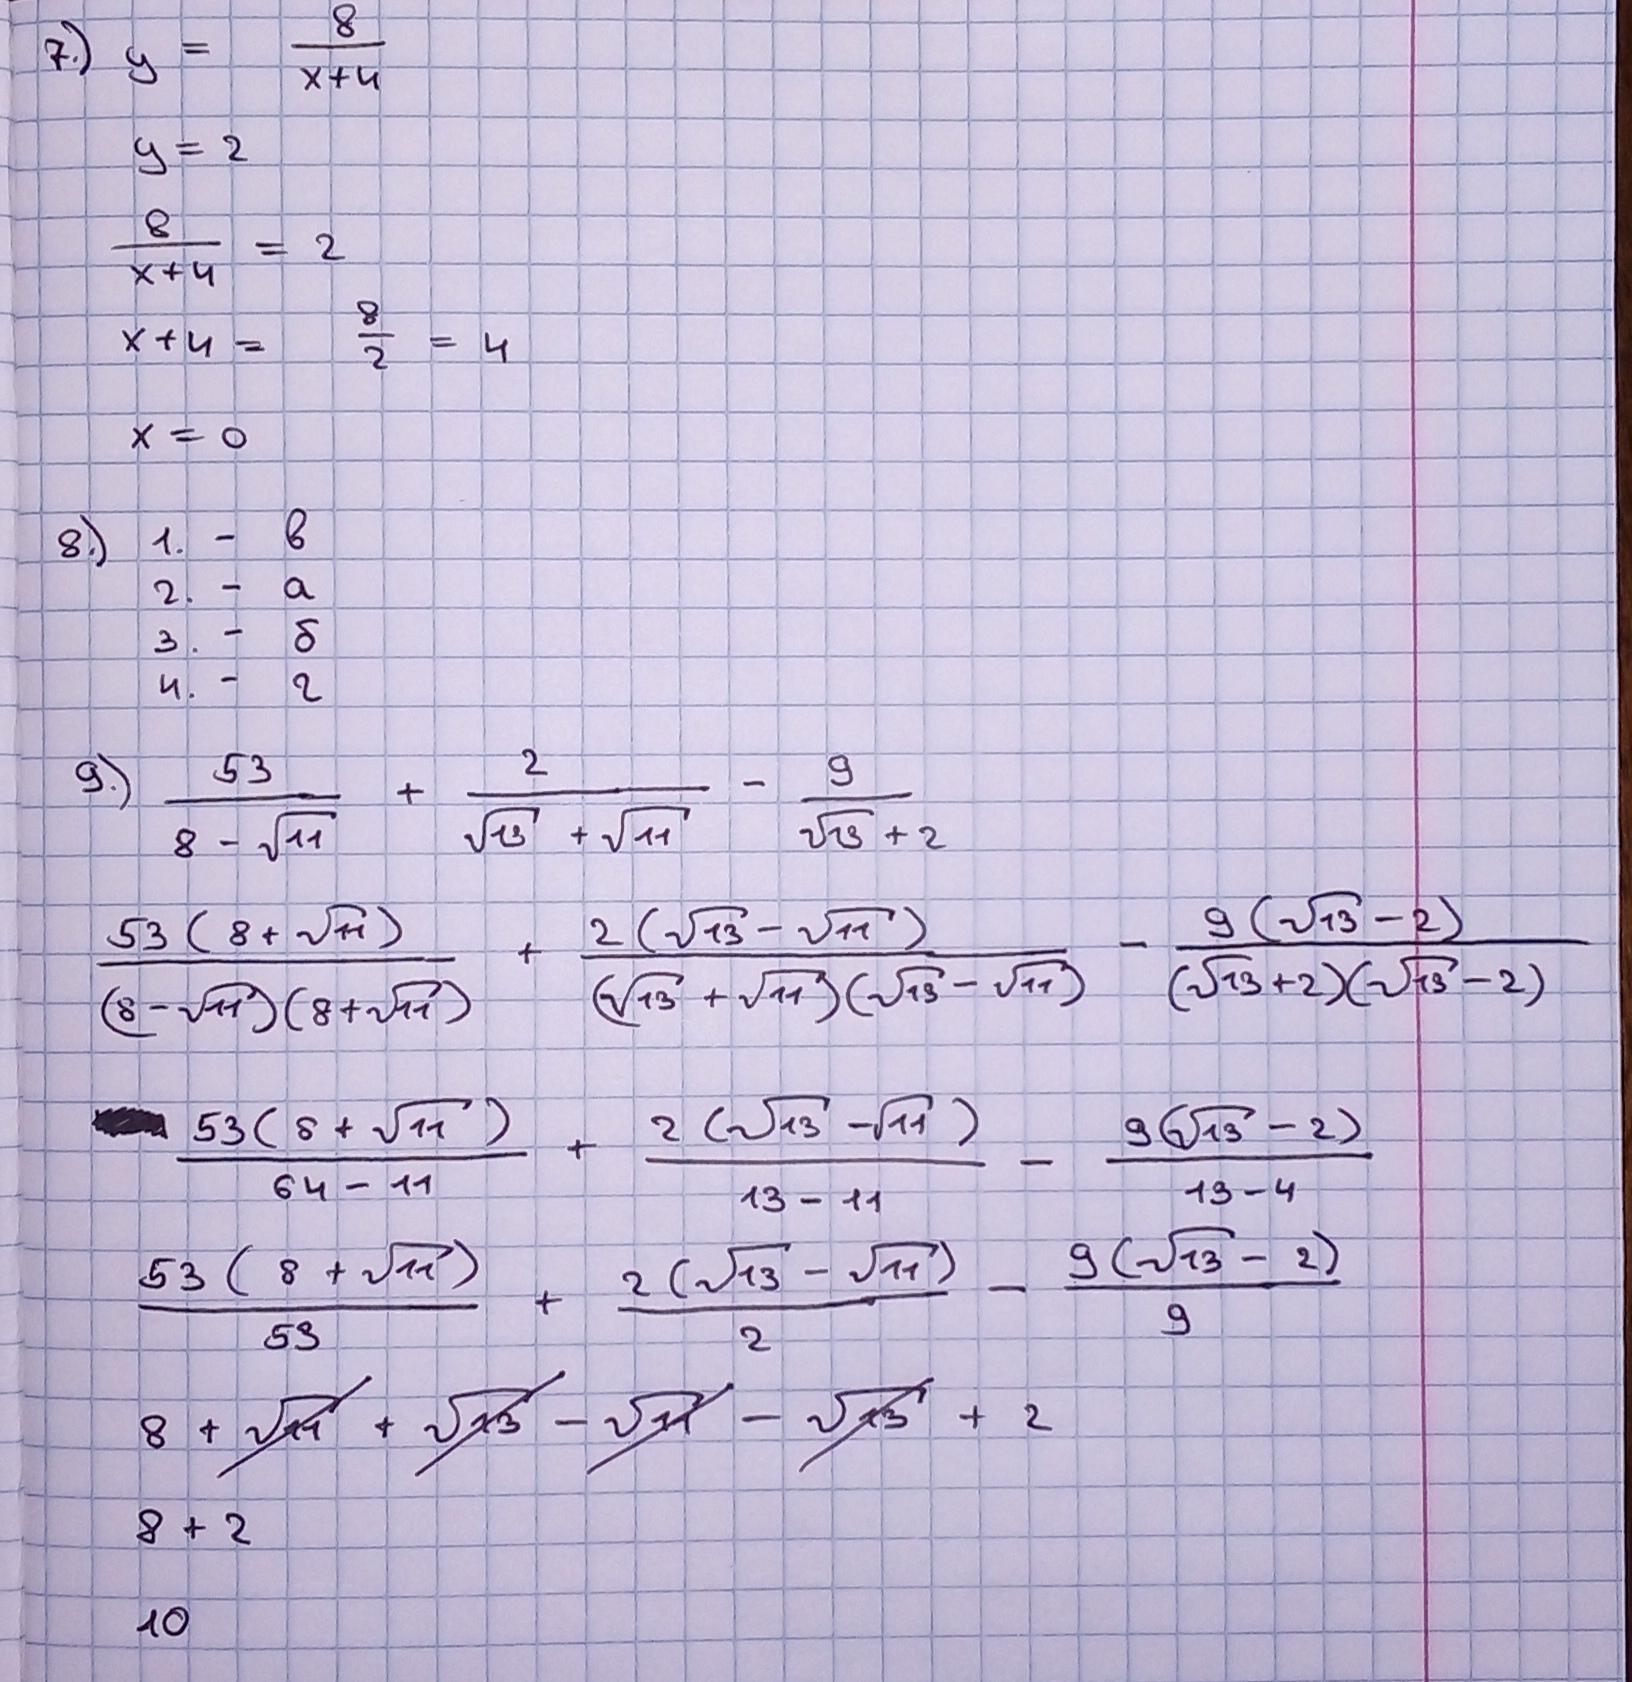 7.) y = 8/(x+4)
y = 2
8/(x+4) = 2
x+4 = 8/2 = 4
x = 0
8.) 1. - в
2. - а
3. - б
4. - г
9.) 53/(8 - √11) + 2/(√13 + √11) - 9/(√13 + 2)
53(8 + √11)/((8 - √11)(8 + √11)) + 2(√13 - √11)/((√13 + √11)(√13 - √11)) - 9(√13 - 2)/((√13 + 2)(√13 - 2))
53(8 + √11)/(64 - 11) + 2(√13 - √11)/(13 - 11) - 9(√13 - 2)/(13 - 4)
53(8 + √11)/53 + 2(√13 - √11)/2 - 9(√13 - 2)/9
8 + √11 + √13 - √11 - √13 + 2
8 + 2
10